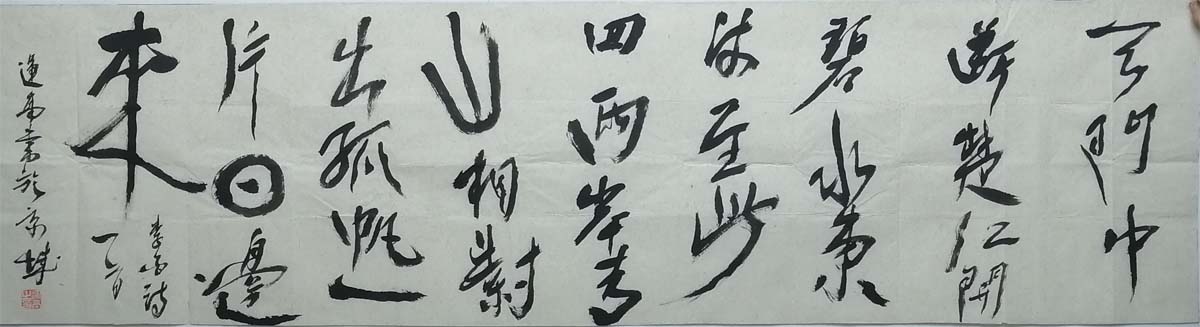 天門中
斷楚江開
碧水東
流至此
回兩岸青
山相對
出孤帆一
片日邊
来
李白詩
一首
書於京城